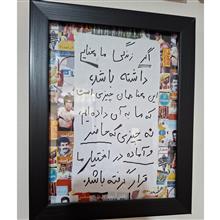 اگر زندگی ما معنایی
داشته باشد
این معنا همان چیزی است
که ما به آن داده‌ایم،
نه چیزی که حاضر
و آماده در اختیار ما
قرار گرفته باشد.